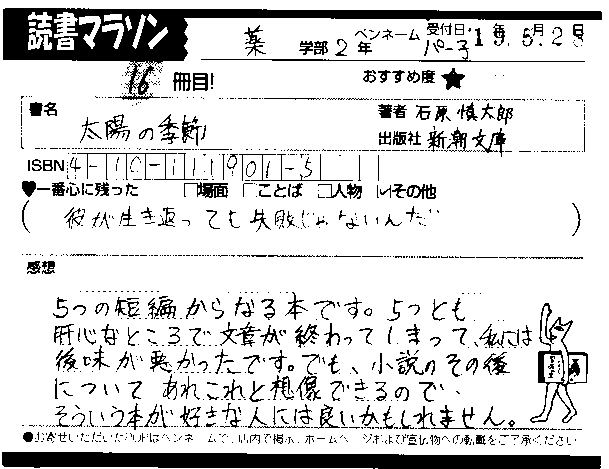 読書マラソン
薬 学部 2 年 ペンネーム パー子 受付日 '19.5.28
16 冊目! おすすめ度 ★
書名 太陽の季節
著者 石原慎太郎
出版社 新潮文庫
ISBN 4-10-111901-5
♥一番心に残った □場面 □ことば □人物 ☑その他
(彼が生き返っても失敗じゃないんだ)
感想
5つの短編からなる本です。5つとも
肝心なところで文章が終わってしまって、私には
後味が悪かったです。でも、小説のその後
について あれこれと想像できるので、
そういう本が好きな人には良いかもしれません。
●お寄せいただいたPOPはペンネームで、店内で掲示、ホームページおよび宣伝物への転載をご了承ください